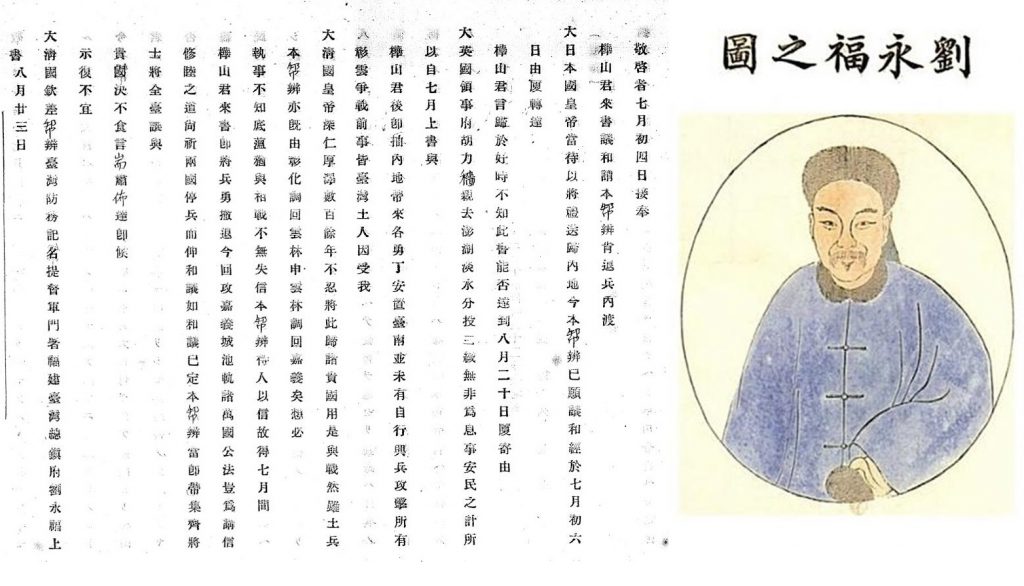 劉永福之圖
敬啓者七月初四日接奉
樺山君來書議和請本幫辨肯退兵內渡
大日本國皇帝當待以將禮送歸內地今本幫辨已願議和經於七月初六
日由厦轉達
樺山君言歸於好時不知此書能否達到八月二十日厦寄由
大英國領事府胡力穡親去澎湖淡水分投二緘無非爲息事安民之計所
以自七月上書與
樺山君後卽抽內地帶來各勇丁安置臺南並未有自行興兵攻擊所有
彰雲爭戰前事皆臺灣土人因受我
大淸國皇帝深仁厚澤數百餘年不忍將此歸諸貴國用是與戰然雖土兵
本幫辨亦旣由彰化調回雲林申雲林調回嘉義矣想必
執事不知底蘊猶與相戰不無失信本幫辨待人以信故得七月間
樺山君來書卽將兵勇撤退今回攻嘉義城池執諸萬國公法豈爲講信
修睦之道尙祈兩國停兵而仰和議如和議已定本幫辨當卽帶集齊將
士將全臺讓與
貴國決不食言耑肅佈達卽候
示復不宣
大淸國欽差幫辨臺灣防務記名提督軍門署福建臺灣總鎭府劉永福上
書八月廿三日